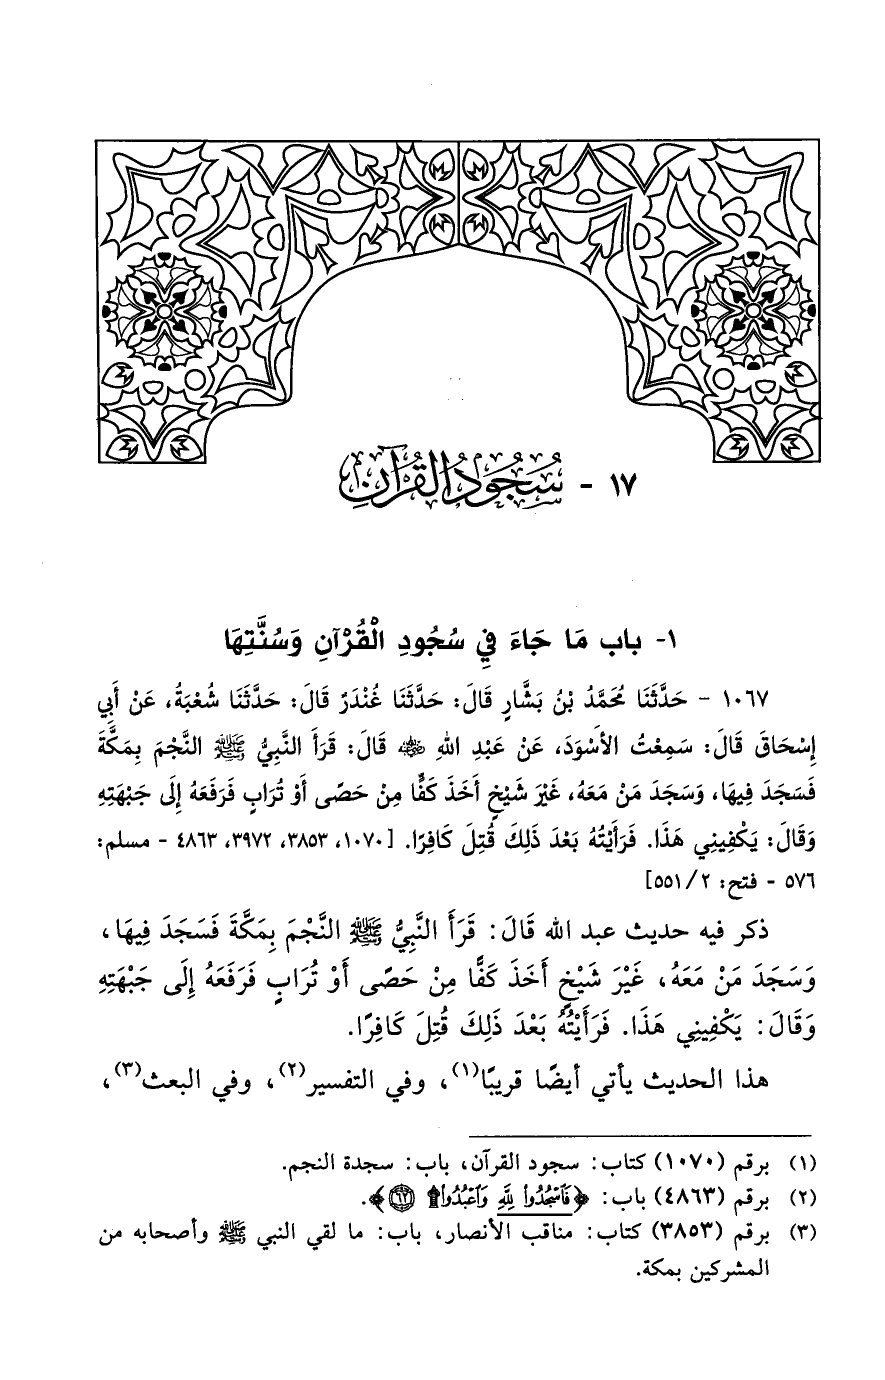 ١٧ - سُجُودُ القُرْآنِ
١- باب مَا جَاءَ فِي سُجُودِ الْقُرْآنِ وَسُنَّتِهَا
١٠٦٧ - حَدَّثَنَا مُحَمَّدُ بْنُ بَشَّارٍ قَالَ: حَدَّثَنَا غُنْدَرٌ قَالَ: حَدَّثَنَا شُعْبَةُ، عَنْ أَبِي
إِسْحَاقَ قَالَ: سَمِعْتُ الأَسْوَدَ، عَنْ عَبْدِ اللهِ رضي الله عنه قَالَ: قَرَأَ النَّبِيُّ ﷺ النَّجْمَ بِمَكَّةَ
فَسَجَدَ فِيهَا، وَسَجَدَ مَنْ مَعَهُ، غَيْرَ شَيْخٍ أَخَذَ كَفًّا مِنْ حَصًى أَوْ تُرَابٍ فَرَفَعَهُ إِلَى جَبْهَتِهِ
وَقَالَ: يَكْفِينِي هَذَا. فَرَأَيْتُهُ بَعْدَ ذَلِكَ قُتِلَ كَافِرًا. [١٠٧٠، ٣٨٥٣، ٣٩٧٢، ٤٨٦٣ - مسلم:
٥٧٦ - فتح: ٢/ ٥٥١]
ذكر فيه حديث عبد الله قَالَ: قَرَأَ النَّبِيُّ ﷺ النَّجْمَ بِمَكَّةَ فَسَجَدَ فِيهَا،
وَسَجَدَ مَنْ مَعَهُ، غَيْرَ شَيْخٍ أَخَذَ كَفًّا مِنْ حَصًى أَوْ تُرَابٍ فَرَفَعَهُ إِلَى جَبْهَتِهِ
وَقَالَ: يَكْفِينِي هَذَا. فَرَأَيْتُهُ بَعْدَ ذَلِكَ قُتِلَ كَافِرًا.
هذا الحديث يأتي أيضًا قريبًا(١)، وفي التفسير(٢)، وفي البعث(٣)،
(١) برقم (١٠٧٠) كتاب: سجود القرآن، باب: سجدة النجم.
(٢) برقم (٤٨٦٣) باب: ﴿فَٱسْجُدُوا۟ لِلَّهِ وَٱعْبُدُوا۟ ۩ ٦٢﴾.
(٣) برقم (٣٨٥٣) كتاب: مناقب الأنصار، باب: ما لقي النبي ﷺ وأصحابه من
المشركين بمكة.